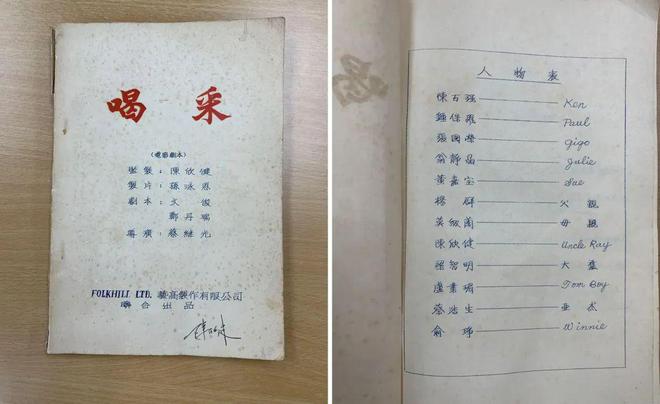 喝采
(電影劇本)
監製：陳欣健
製片：孫泳恩
劇本：文俊
鄭丹瑞
導演：蔡繼光
FOLKHILL LTD. 藝高製作有限公司
聯合出品
人物表
陳百强 Ken
鍾保羅 Paul
張國榮 Gigo
翁靜晶 Julie
黃嘉宝 Sue
楊群 父親
吳敏蘭 母親
陳欣健 Uncle Ray
梁智明 大
盧業瑂 Tom Boy
蔡浩生 亞太
俞琤 Winnie